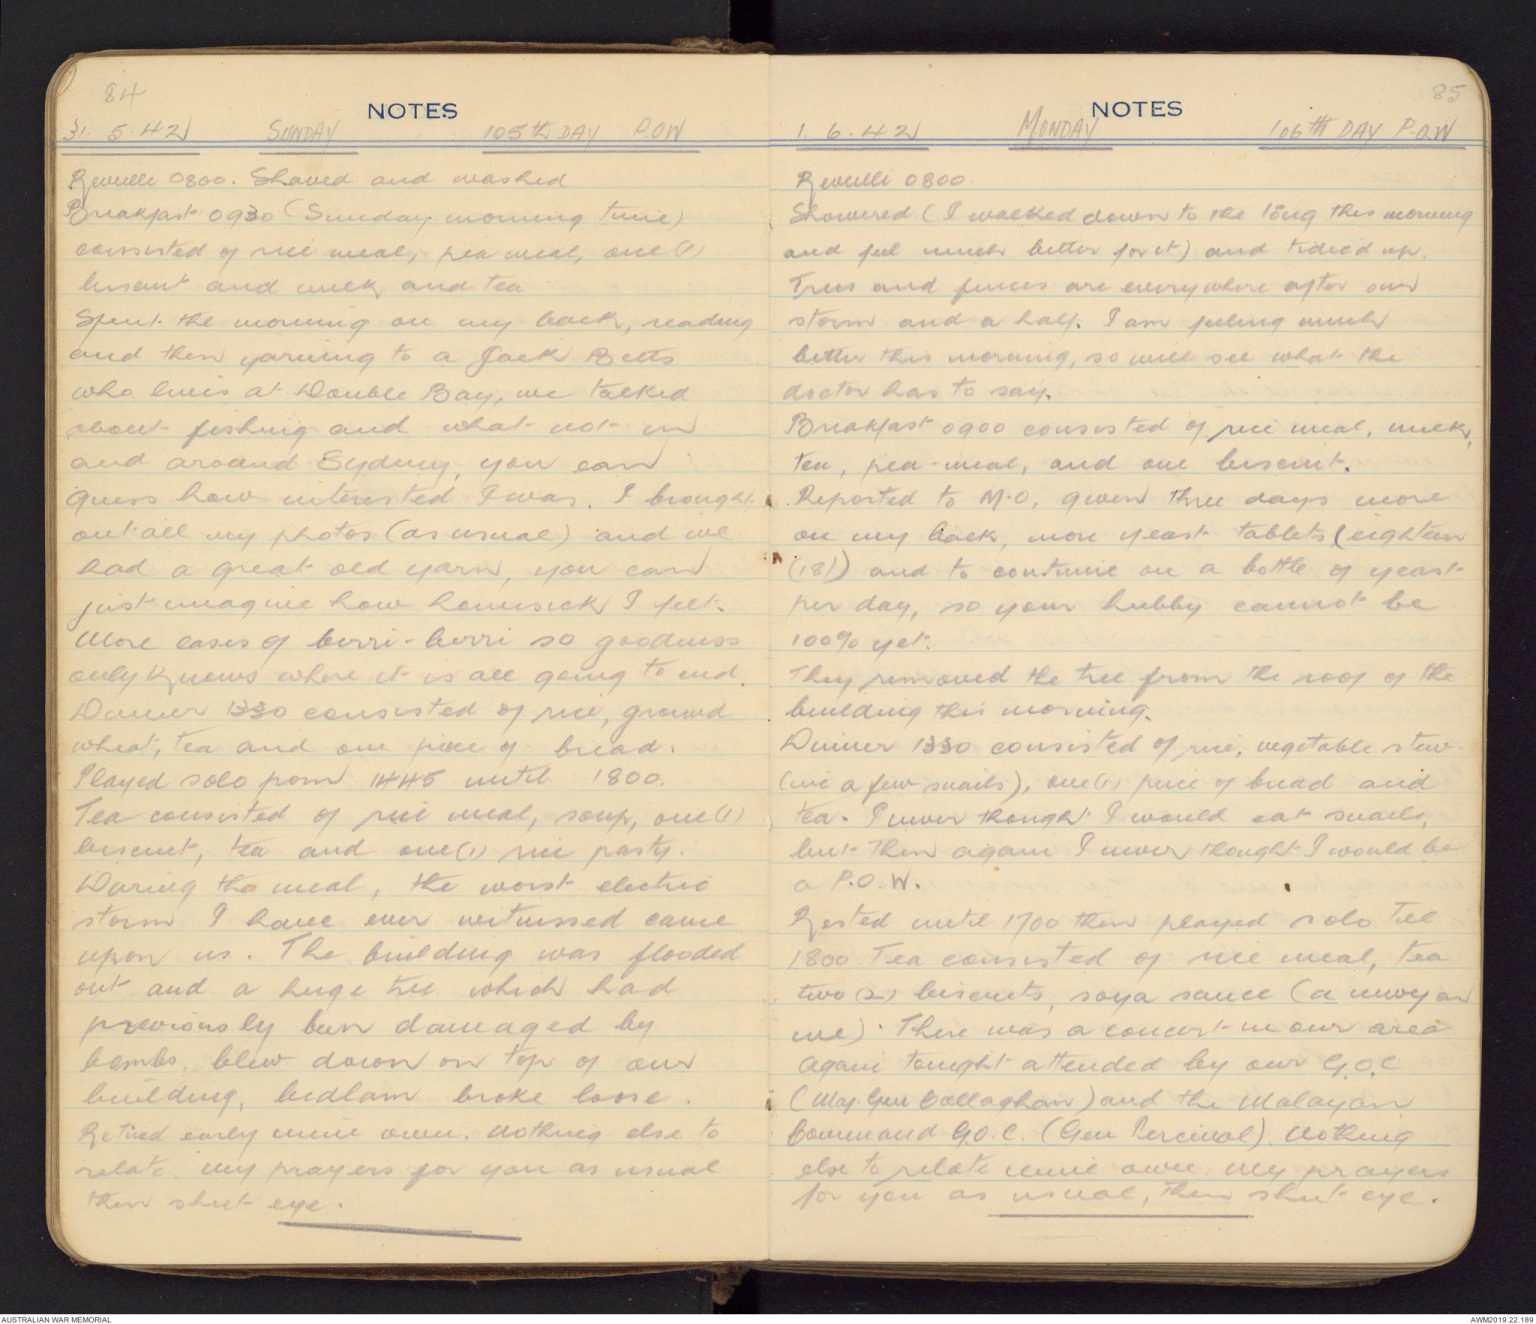 84
NOTES
31. 5. 42 SUNDAY 105th DAY P.O.W
Revielli 0800. Shaved and washed
Breakfast 0930 (Sunday morning time)
consisted of rice meal, pea meal, one (1)
biscuit and milk and tea
Spent the morning on my back, reading
and then yarning to a Jack Betts
who lives at Double Bay, we talked
about fishing and what not in
and around Sydney, you can
guess how interested I was. I brought
out all my photos (as usual) and we
had a great old yarn, you can
just imagine how homesick I felt.
More cases of berri-berri so goodness
only knows where it is all going to end.
Dinner 1330 consisted of rice, ground
wheat, tea and one piece of bread.
Played solo from 1445 until 1800.
Tea consisted of rice meal, soup, one (1)
biscuit, tea and one (1) rice pasty.
During the meal, the worst electric
storm I have ever witnessed came
upon us. The building was flooded
out and a huge tree which had
previously been damaged by
bombs, blew down on top of our
building, bedlam broke loose.
Retired early mine own. Nothing else to
relate. My prayers for you as usual
then shut eye.
85
NOTES
1. 6. 42 MONDAY 106TH DAY P.O.W
Revielli 0800.
Showered (I walked down to the long this morning
and feel much better for it) and tidied up.
Trees and fences are everywhere after our
storm and a half. I am feeling much
better this morning, so will see what the
doctor has to say.
Breakfast 0900 consisted of rice meal, milk,
tea, pea-meal, and one biscuit.
Reported to M.O, given three days more
on my back, more yeast tablets (eighteen
(18)) and to continue on a bottle of yeast
per day, so your hubby cannot be
100% yet.
They removed the tree from the roof of the
building this morning.
Dinner 1330 consisted of rice, vegetable stew
(inc a few snails), one (1) piece of bread and
tea. I never thought I would eat snails,
but then again I never thought I would be
a P.O.W.
Rested until 1700 then played solo till
1800 Tea consisted of rice meal, tea
two (2) biscuits, soya sauce (a
). There was a concert in our area
again tonight attended by our G.O.C
(Maj. Gen Callaghan) and the Malayan
Command G.O.C. (Gen Percival). Nothing
else to relate mine own. My prayers
for you as usual, then shut eye.
AUSTRALIAN WAR MEMORIAL
AWM2019.22.189